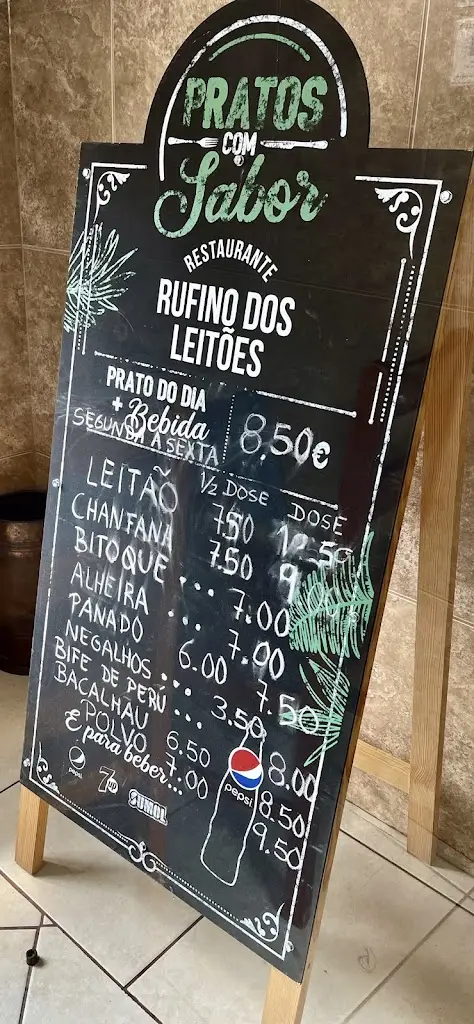 PRATOS
COM
Sabor
RESTAURANTE
RUFINO DOS
LEITÕES
PRATO DO DIA
+ Bebida
8.50€
SEGUNDA A SEXTA
1/2 DOSE DOSE
LEITÃO 7.50 12.50
CHANFANA 7.50 9
BITOQUE ... 7.00
ALHEIRA ... 7.00
PANADO 6.00 7.50
NEGALHOS ... 3.50
BIFE DE PERÚ ... 8.00
BACALHAU 6.50 8.50
POLVO 7.00 9.50
E para beber...
pepsi
7up
SUMOL
pepsi